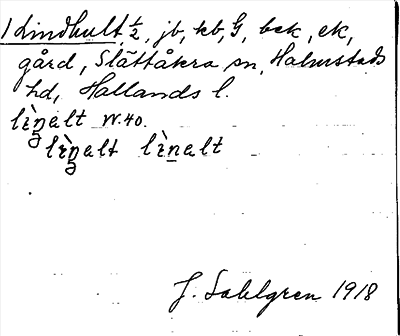 1 Lindhult ½, jb, kb, G, bek, ek,
gård, Slättåkra sn, Halmstads
hd, Hallands l.
lìn̥ɐlt W. 40.
lìn̥ɐlt lìn̲ɐlt
J. Sahlgren 1918